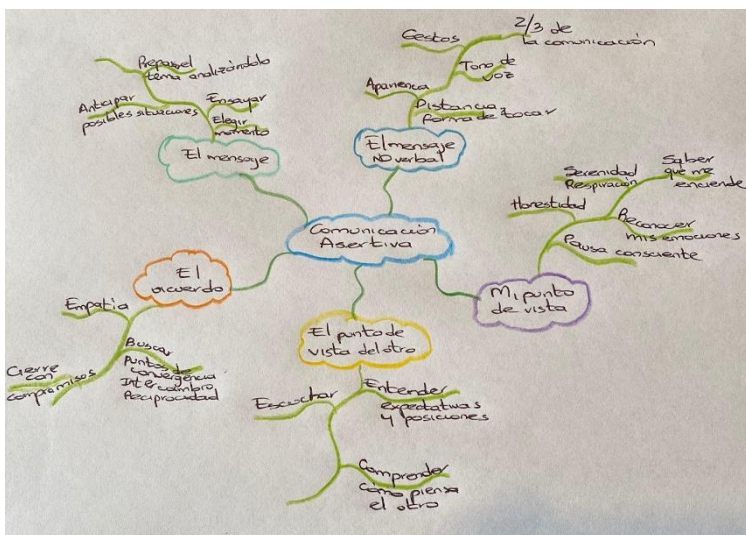 Preparar el
tema analizándolo
Anticipar
posibles situaciones
Ensayar
Elegir
momento
El mensaje
Gestos
2/3 de
la comunicación
Tono de
voz
Apariencia
Distancia,
forma de tocar
El mensaje
NO verbal
Comunicación
Asertiva
Serenidad
Respiración
Saber
que me
enciende
Honestidad
Reconocer
mis emociones
Pausa consciente
Mi punto
de vista
El
acuerdo
Empatia
Buscar
Puntos de
convergência
Intercambio
Reciprocidad
Cierre
con
compromisos
El punto de
vista del otro
Escuchar
Entender
expectativas
y posiciones
Comprender
cómo piensa
el otro